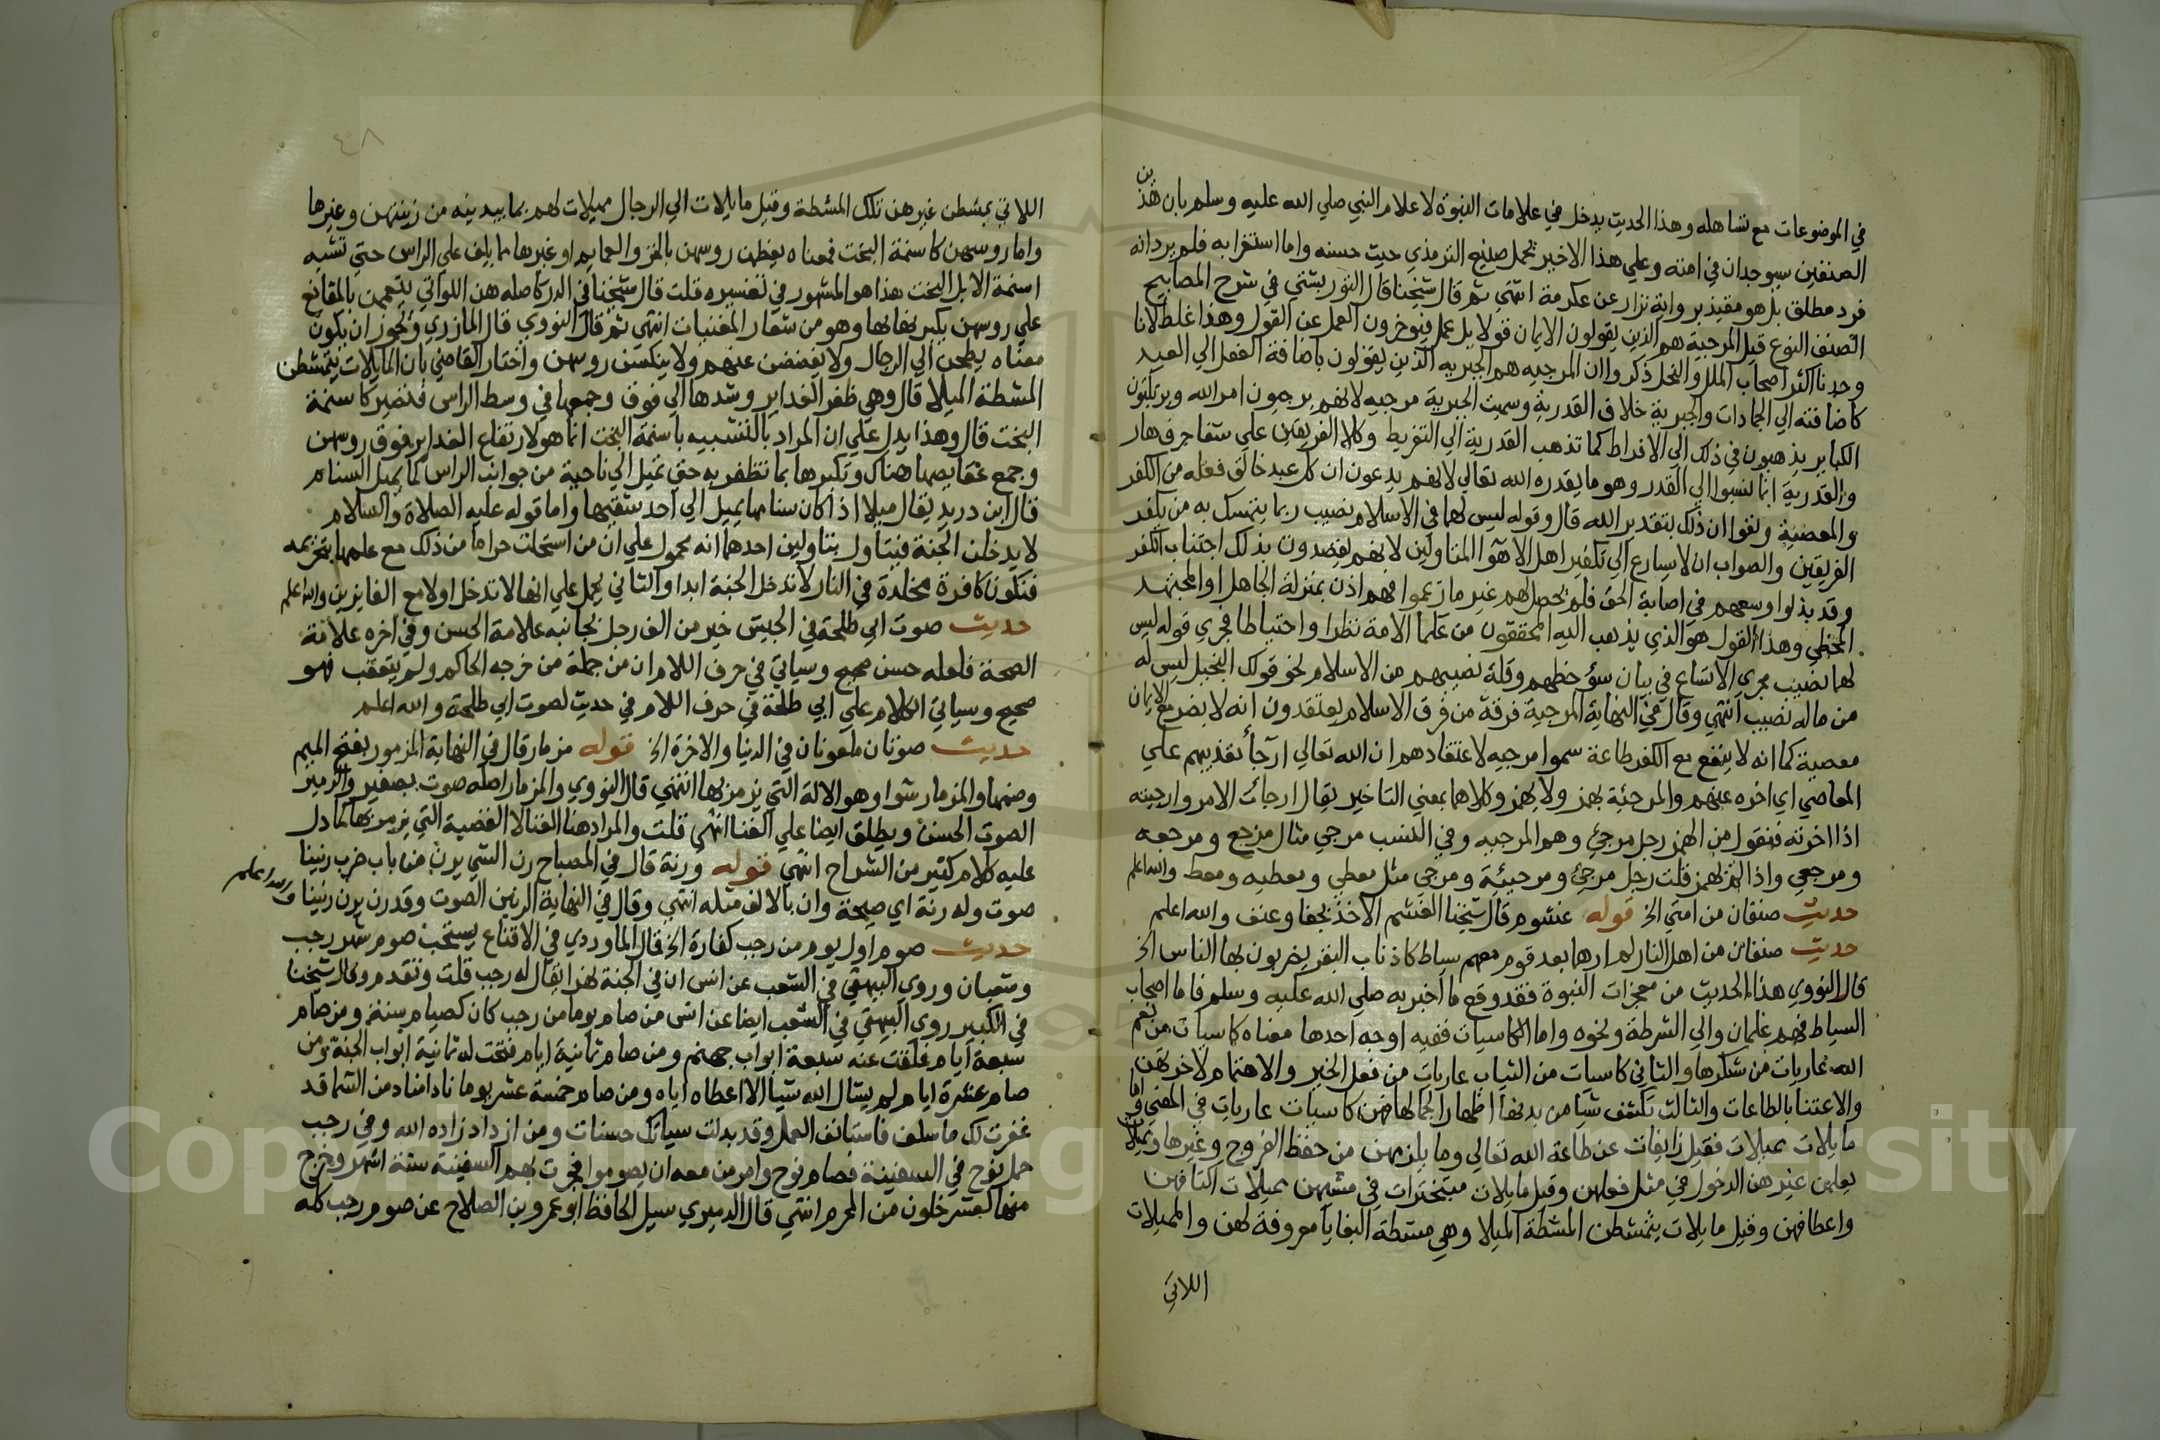 في الموضوعات مع تساهله وهذا الحديث يدخل في علامات النبوة لاعلام النبي صلي الله عليه وسلم بان هذين
الصنفين سيوجدان في امته وعلي هذا الاخير يحمل صنيع الترمذي حيث حسنه واما استغرابه فلم يرد انه
فرد مطلق بل هو مقيد برواية نزار عن عكرمة انتهي ثم قال شيخنا قال التوربشتي في شرح المصابيح
الصنف النوع قيل المرجية هم الذين يقولون الايمان قول بلا عمل فيوخرون العمل عن القول وهذا غلط لانا
وجدنا اكثر اصحاب الملل والنحل ذكروا ان المرجيه هم الجبريه الذين يقولون باضافة الفعل الي العبد
كاضافته الي الجمادات والجبرية خلاف القدرية وسميت الجبرية مرجيه لانهم يرجون امر الله ويرتكبون
الكباير يذهبون في ذلك الي الافراط كما تذهب القدرية الي التفريط وكلا الفريقين علي شفا جرف هار
والقدرية انما نسبوا الي القدر وهو ما يقدره الله تعالي لانهم يدعون ان كل عبد خالق فعله من الكفر
والمعصية ونفوا ان ذلك بتقدير الله قال وقوله ليس لهما في الاسلام نصيب ربما يتمسك به من يكفر
الفريقين والصواب ان لا يسارع الي تكفير اهل الاهوا المتاولين لانهم لم يقصدون بذلك اجتناب الكفر
وقد بذلوا وسعهم في اصابة الحق فلم يحصل لهم غير ما زعموا فهم اذن بمنزلة الجاهل او المجتهد
المخطي وهذا القول هو الذي يذهب اليه المحققون من علما الامة نظرا واحتياطا فجري قوله ليس
لهما نصيب مجري الاتساع في بيان سؤ حظهم وقلة نصيبهم من الاسلام نحو قولك البخيل ليس له
من ماله نصيب انتهي وقال في النهاية المرجية فرقة من فرق الاسلام يعتقدون انه لا يضر مع الايمان
معصية كما انه لا ينفع مع الكفر طاعة سموا مرجيه لاعتقادهم ان الله تعالي ارجأ تعذيبهم علي
المعاصي اي اخره عنهم والمرجئة بهمز ولا يهمز وكلاهما بمعني التاخير يقال ارجات الامر وارجيته
اذا اخرته فنقول من الهمز رجل مرجئ وهم المرجيه وفي النسب مرجي مثال مرجع ومرجعه
ومرجعي واذا لم تهمز قلت رجل مرجئ ومرجيئة ومرجي مثل معطي ومعطيه ومعط والله اعلم
حديث صنفان من امتي الخ قوله غشوم قال شيخنا الغشم الاخذ بجفا وعنف والله اعلم
حديث صنفان من اهل النار لم ارهما بعد قوم معهم سياط كاذناب البقر يضربون بها الناس الخ
قال النووي هذا الحديث من معجزات النبوة فقد وقع ما اخبر به صلي الله عليه وسلم فاما اصحاب
السياط فهم غلمان والي الشرطة ونحوه واما الكاسيات ففيه اوجه احدها معناه كاسيات من نعم
الله عاريات من شكرها والثاني كاسيات من الثياب عاريات من فعل الخير والاهتمام لاخرتهن
والاعتنا بالطاعات والثالث تكشف شيا من بدنها اظهارا لجمالها فهن كاسيات عاريات في المعني واما
مايلات مميلات فقيل زايغات عن طاعة الله تعالي وما يلزمهن من حفظ الفروج وغيرها ومميلات
يعلمن غيرهن الدخول في مثل فعلهن وقيل مايلات متبخترات في مشيهن مميلات اكتافهن
واعطافهن وقيل مايلات يتمشطن المشطة الميلا وهي مشطة البغايا معروفة لهن والمميلات
اللاتي
٤٨
اللاتي يمشطن غيرهن تلك المشطة وقيل مايلات الي الرجال مميلات لهم بما يبدينه من زينتهن وغيرها
واما روسهن كاسنمة البخت فمعناه يعظمن روسهن بالخمر والعمايم او غيرها مما يلف علي الراس حتي تشبه
اسنمة الابل البخت هذا هو المشهور في تفسيره قلت قال شيخنا في الدر كاصله هن اللواتي يتعممن بالمقانع
علي روسهن يكبرنها بها وهو من شعار المغنيات انتهي ثم قال النووي قال المازري ويجوز ان يكون
معناه يطمحن الي الرجال ولا يغضضن عنهم ولا ينكسن روسهن واختار القاضي بان المايلات يتمشطن
المشطة الميلا قال وهي ظفر الغداير وشدها الي فوق وجمعها في وسط الراس فتصير كاسنمة
البخت قال وهذا يدل علي ان المراد بالتشبيه باسنمة البخت انما هو لارتفاع الغداير فوق روسهن
وجمع عقايصها هناك وتكبرها بما تتظفر به حتي تميل الي ناحية من جوانب الراس كما يميل السنام
قال ابن دريد يقال ميلا اذا كان سنامها يميل الي احد شقيها واما قوله عليه الصلاة والسلام
لا يدخلن الجنة فيتاول بتاولين احدهما انه محمول علي ان من استحلت حراما من ذلك مع علمها بتحريمه
فتكون كافرة مخلدة في النار لا تدخل الجنة ابدا والثاني يحمل علي انها لا تدخل اولا مع الفايزين والله اعلم
حديث صوت ابي طلحة في الجيش خير من الف رجل بجانبه علامة الحسن وفي اخره علامة
الصحة فلعله حسن صحيح وسياتي في حرف اللام ان من جملة من خرجه الحاكم ولم يتعقب فهو
صحيح وسياتي الكلام علي ابي طلحة في حرف اللام في حديث لصوت ابي طلحة والله اعلم
حديث صوتان ملعونان في الدنيا والاخرة الخ قوله مزمار قال في النهاية المزمور بفتح الميم
وضمها والمزمار سوا وهو الالة التي يزمر بها انتهي قال النووي والمزمار اصله صوت بصفير والزمير
الصوت الحسن ويطلق ايضا علي الغنا انتهي قلت والمراد هنا الغنا لا القصبة التي يزمر بها كما دل
عليه كلام كثير من الشراح انتهي قوله ورنة قال في المصباح رن الشي يرن من باب ضرب رنينا
صوت وله رنة اي صيحة وارن بالالف مثله انتهي وقال في النهاية الرنين الصوت وقد رن يرن رنينا والله اعلم
حديث صوم اول يوم من رجب كفارة الخ قال الماوردي في الاقناع يستحب صوم شهر رجب
وشعبان وروي البيهقي في الشعب عن انس ان في الجنة نهرا يقال له رجب قلت وتقدم وقال شيخنا
في الكبير روي البيهقي في الشعب ايضا عن انس من صام يوما من رجب كان كصيام سنة ومن صام
سبعة ايام غلقت عنه سبعة ابواب جهنم ومن صام ثمانية ايام فتحت له ثمانية ابواب الجنة ومن
صام عشرة ايام لم يسال الله شيا الا اعطاه اياه ومن صام خمسة عشر يوما نادا مناد من السما قد
غفرت لك ما سلف فاستانف العمل وقد بدلت سياتك حسنات ومن ازداد زاده الله وفي رجب
حمل نوح في السفينة فصام نوح وامر من معه ان يصوموا فجرت بهم السفينة ستة اشهر وخرج
منها لعشر خلون من المحرم انتهي قال الدميري سيل الحافظ ابو عمرو بن الصلاح عن صوم رجب كله